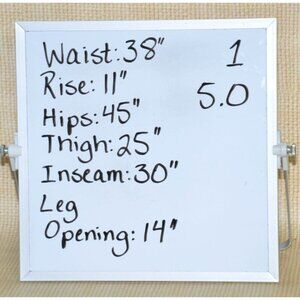 Waist: 38" 1
Rise: 11" 5.0
Hips: 45"
Thigh: 25"
Inseam: 30"
Leg
Opening: 14"